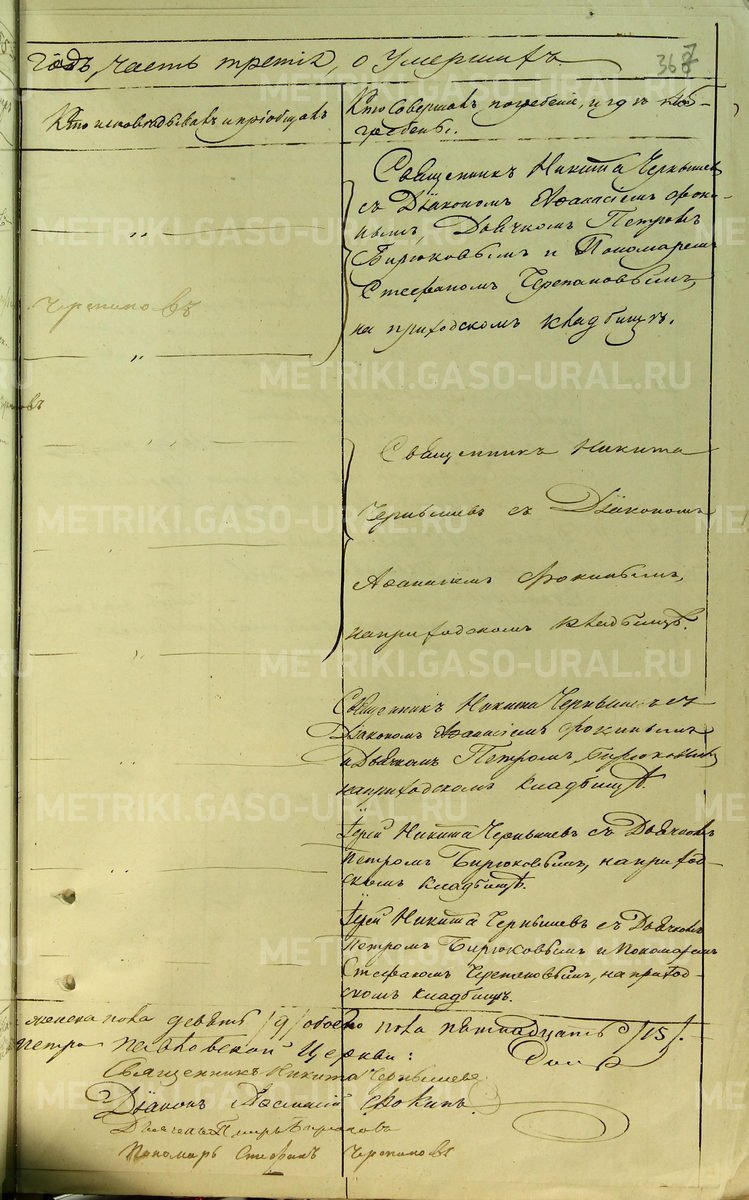 годъ, часть третія, о Умершихъ
367
Кто исповѣдывалъ и пріобщалъ
Кто совершалъ погребеніе, и гдѣ по-
гребены.
Священникъ Никита Чернышев
съ Діакономъ Афанасіемъ Фоки-
нымъ, Дьячкомъ Петромъ
Бирюковымъ и Пономаремъ
Стефаномъ Черепановымъ,
на приходскомъ кладбищѣ.
Черепановъ
Священникъ Никита
Чернышевъ съ Діакономъ
Афанасіемъ Фокинымъ,
на приходскомъ кладбищѣ.
Священникъ Никита Чернышевъ съ
Діакономъ Афанасіемъ Фокинымъ
и Дьячкомъ Петромъ Бирюковым
на приходскомъ кладбищѣ.
Іерей Никита Чернышевъ съ Дьячкомъ
Петромъ Бирюковымъ, на приход-
скомъ кладбищѣ.
Іерей Никита Чернышевъ съ Дьячкомъ
Петромъ Бирюковымъ и Пономаремъ
Стефаномъ Черепановымъ, на приход-
скомъ кладбищѣ.
женска пола девять /9/ обоего пола пятнадцать /15/.
Петро Павловской Церкви:
Священникъ Никита Чернышевъ
Діаконъ Афанасій Фокинъ.
Дьячекъ Петръ Бирюковъ
Пономарь Стефанъ Черепановъ
METRIKI.GASO-URAL.RU